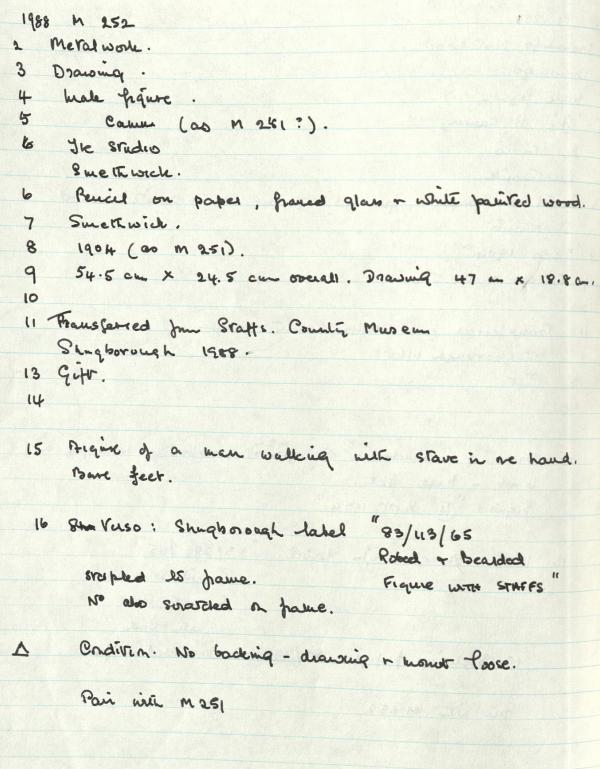 1988 M 252
2 Metalwork.
3 Drawing.
4 Male figure.
5 Camm (as M 251?).
6 The Studio
Smethwick.
6 Pencil on paper, framed glass + white painted wood.
7 Smethwick.
8 1904 (as M 251).
9 54.5 cm x 24.5 cm overall. Drawing 47 cm x 18.8 cm.
10
11 Transferred from Staffs. County Museum
Shugborough 1988.
13 Gift.
14
15 Figure of a man walking with stave in one hand.
Bare feet.
16 Verso: Shugborough label "83/113/65
Robed + Bearded
stapled to frame. Figure with STAFFS"
No also scratched on frame.
Δ Condition. No backing - drawing + mount loose.
Pair with M 251